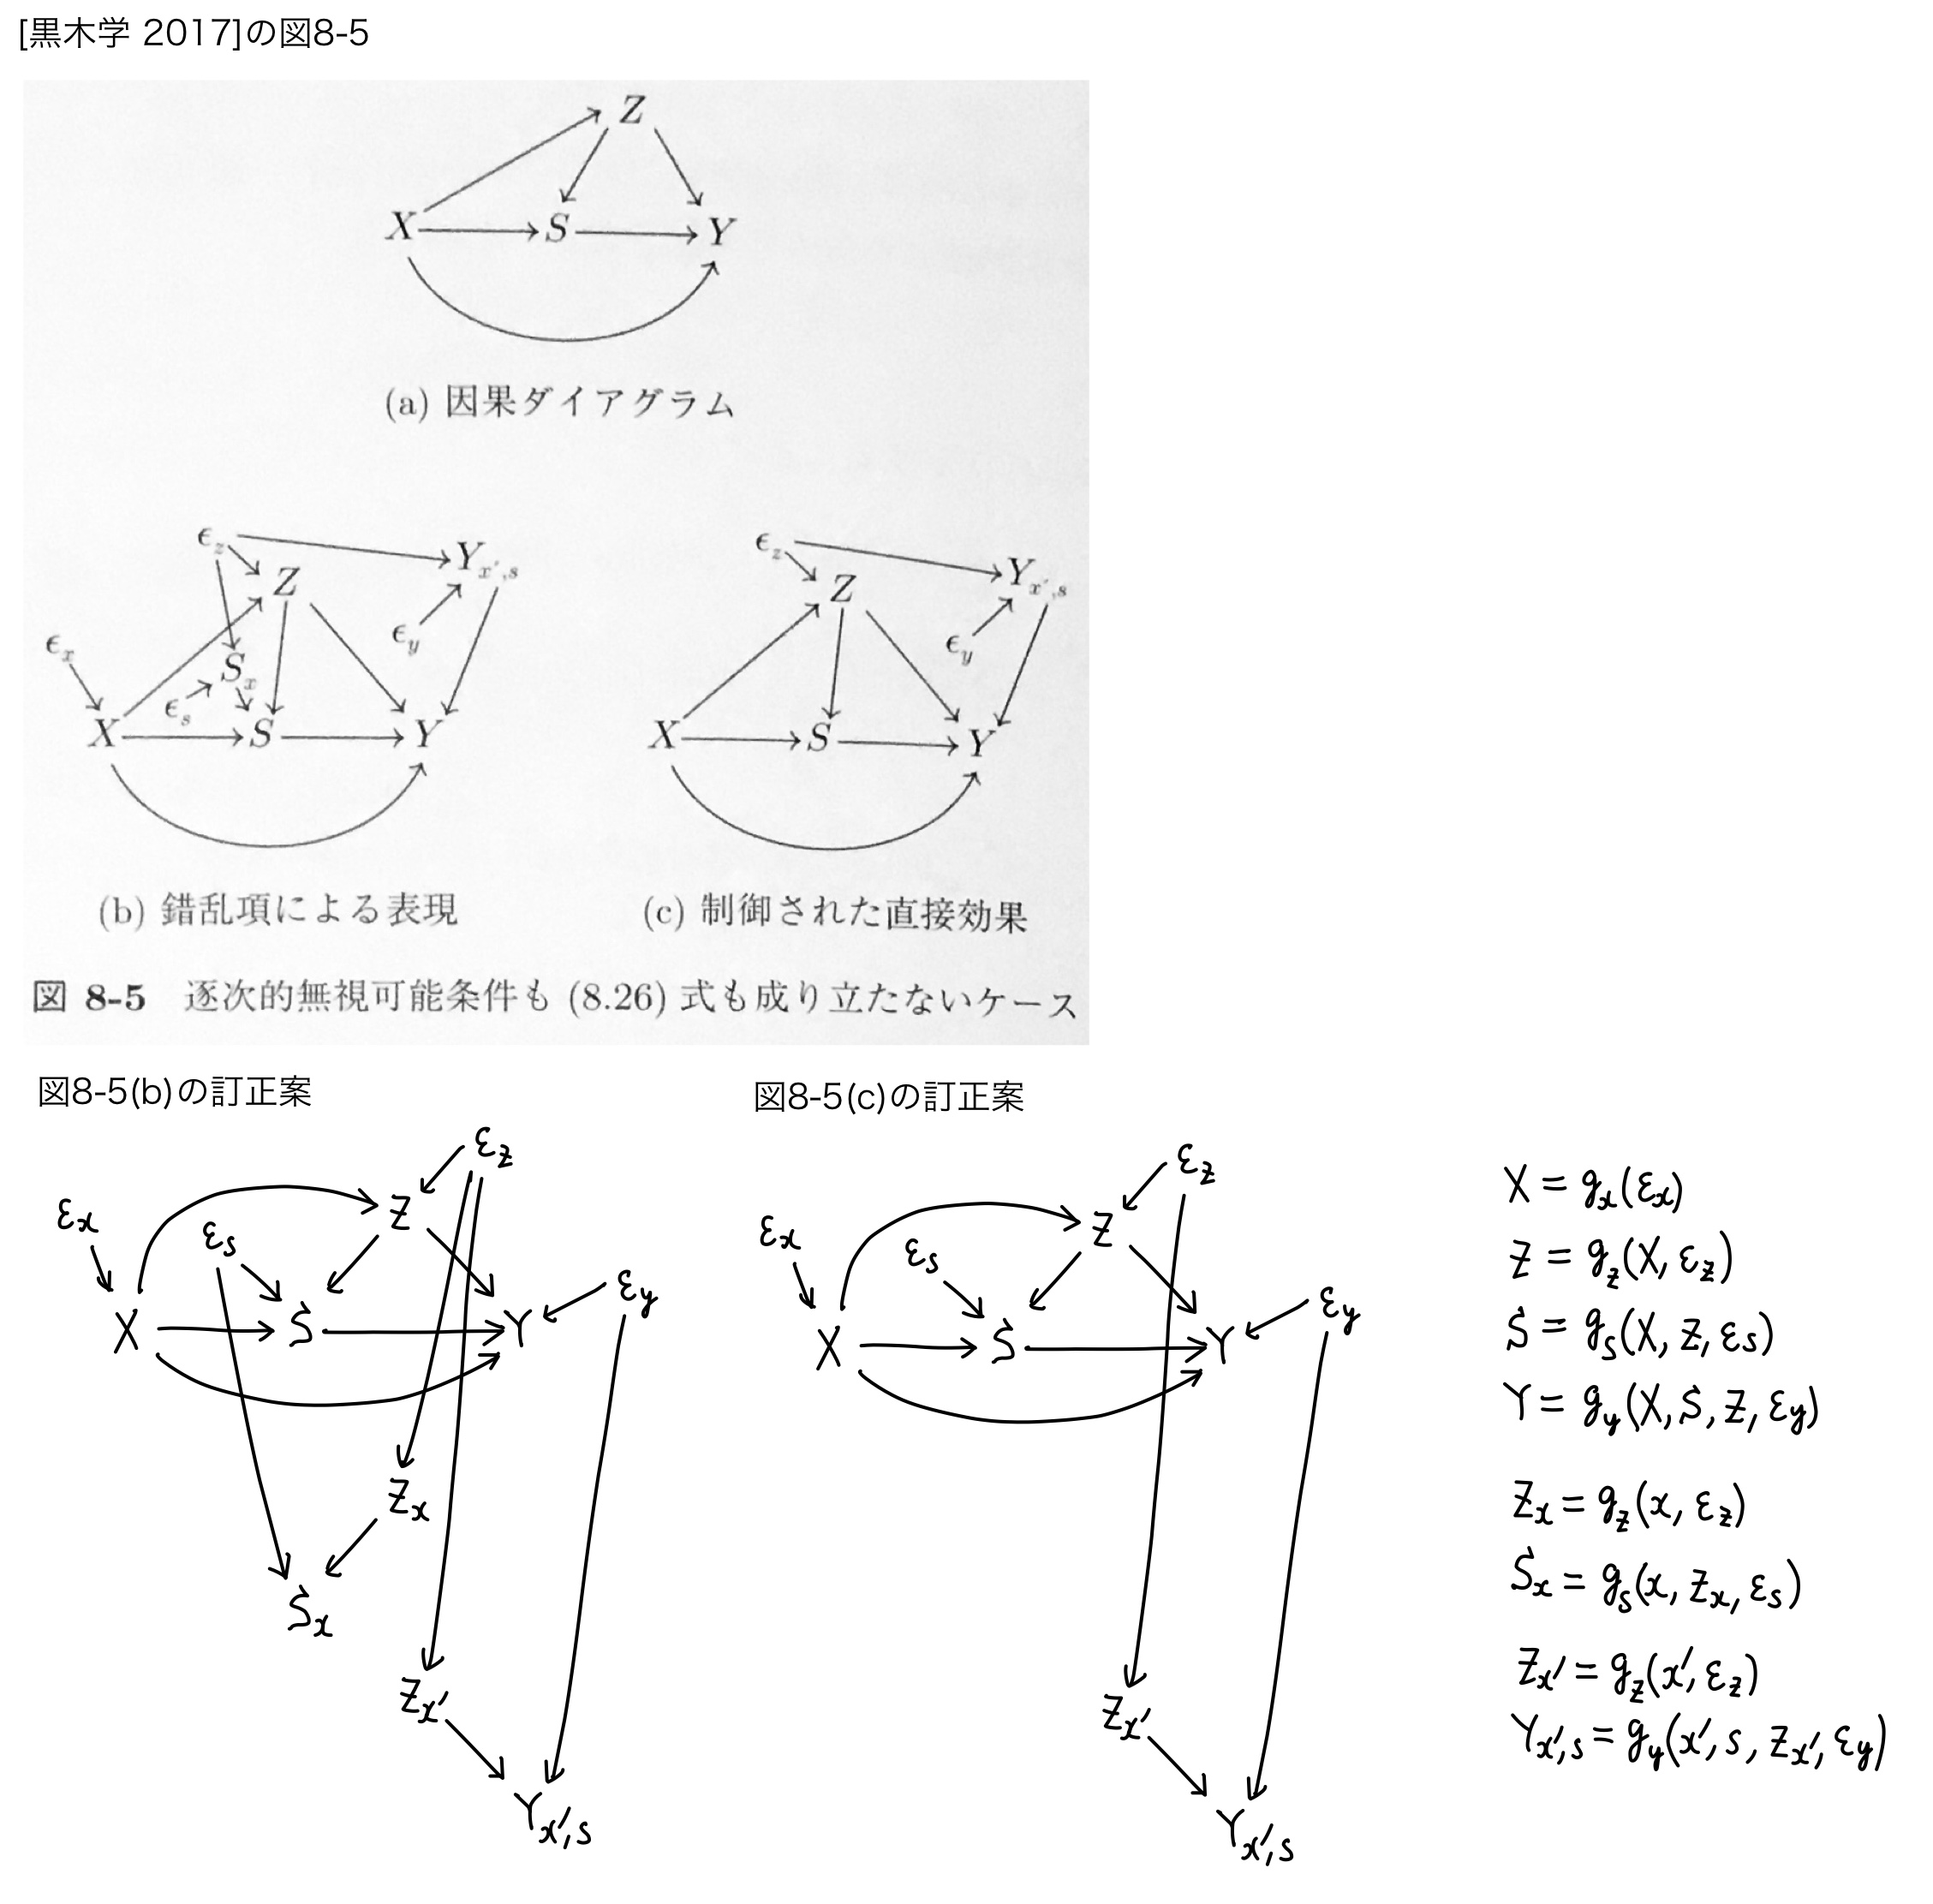 [黒木学 2017]の図8-5
Z
X S Y
(a) 因果ダイアグラム
ϵz Yx′,s
Z
ϵy
ϵx
Sx
ϵs
X S Y
(b) 錯乱項による表現
ϵz Yx′,s
Z
ϵy
X S Y
(c) 制御された直接効果
図 8-5 逐次的無視可能条件も (8.26) 式も成り立たないケース
図8-5(b)の訂正案
εz
Z
εx
εs
εy
X S Y
Zx
Sx
Zx′
Yx′,s
図8-5(c)の訂正案
εz
Z
εx
εs
εy
X S Y
Zx′
Yx′,s
X = gx(εx)
Z = gz(X, εz)
S = gs(X, Z, εs)
Y = gy(X, S, Z, εy)
Zx = gz(x, εz)
Sx = gs(x, Zx, εs)
Zx′ = gz(x′, εz)
Yx′,s = gy(x′, s, Zx′, εy)